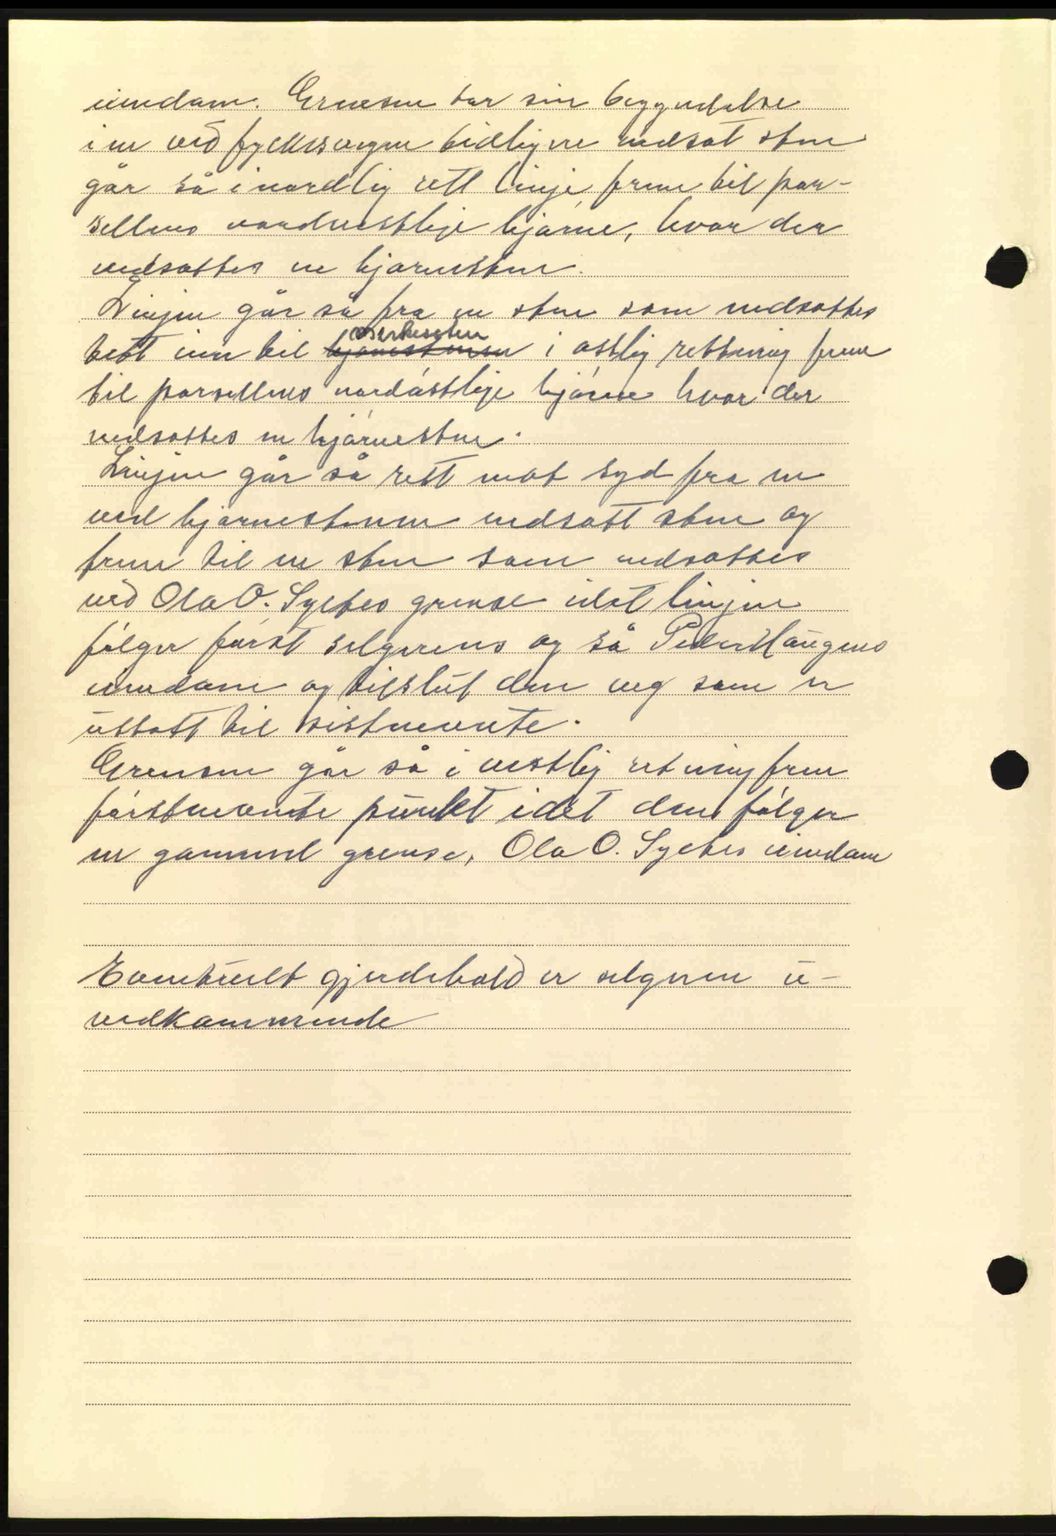 eiendom. Grensen tar sin begyndelse
i en ved fylkesveyen tidligere nedsat sten
går så i nordlig rett linje frem til par-
sellens nordvestlige hjørne, hvor der
nedsattes en hjørnesten.
Linjen går så fra en sten som nedsattes
tett inn til hjørnestenen merkesten i østlig retning frem
til parsellens nordøstlige hjørne hvor der
nedsattes en hjørnesten.
Linjen går så rett mot syd fra en
ved hjørnestenen nedsatt sten og
frem til en sten som nedsattes
ved Ola O. Syltes grense idet linjen
følger først selgerens og så Peder Haugens
eiendom og tilslut den veg som er
utlatt til sistnevnte.
Grensen går så i vestlig retning frem
førstnevnte punkt idet den følger
en gammel grense, Ola O. Syltes eiendom
Eventuelt gjerdehold er selgeren u-
vedkommende